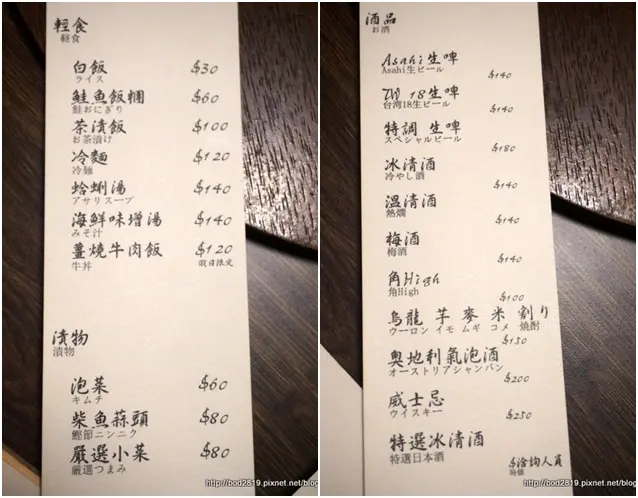 輕食
軽食
白飯 $30
ライス
鮭魚飯糰 $60
鮭おにぎり
茶漬飯 $100
お茶漬け
冷麵 $120
冷麺
蛤蜊湯 $140
アサリスープ
海鮮味增湯 $140
みそ汁
薑燒牛肉飯 $120
牛丼 假日限定
漬物
漬物
泡菜 $60
キムチ
柴魚蒜頭 $80
鰹節ニンニク
嚴選小菜 $80
厳選つまみ
http://bod2819.pixnet.net/blog
酒品
お酒
Asahi生啤
Asahi生ビール $140
TW 18生啤
台湾18生ビール $140
特調 生啤
スペシャルビール $180
冰清酒
冷やし酒 $140
溫清酒
熱燗 $140
梅酒
梅酒 $140
角High
角High $100
烏龍 芋 麥 米 割り
ウーロン イモ ムギ コメ 焼酎
$150
奧地利氣泡酒
オーストリアシャンパン
$200
威士忌
ウイスキー $250
特選冰清酒
特選日本酒 $洽詢人員
時価
http://bod2819.pixnet.net/blog